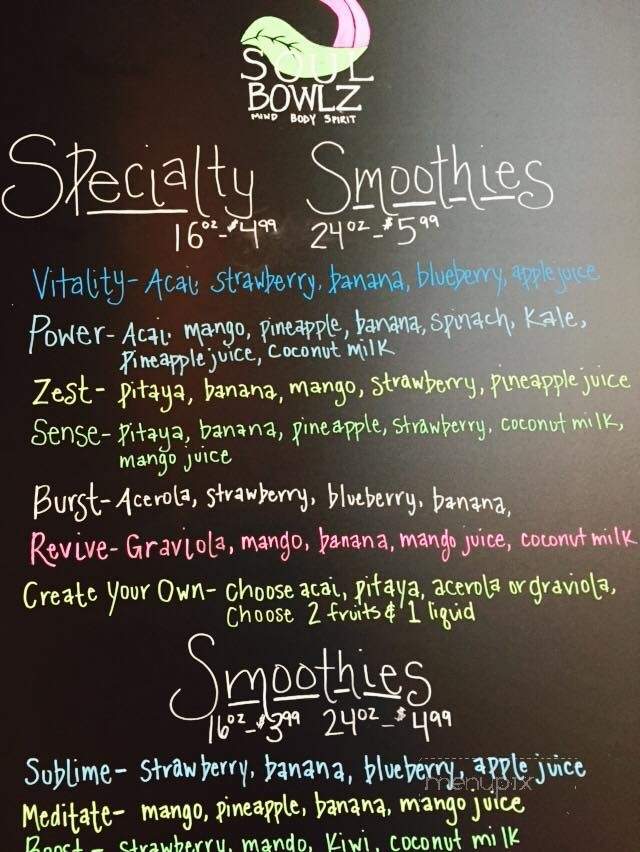 SOUL
BOWLZ
MIND BODY SPIRIT
Specialty Smoothies
16oz-$4.99 24oz-$5.99
Vitality- Acai, strawberry, banana, blueberry, apple juice
Power- Acai, mango, pineapple, banana, spinach, Kale,
Pineapple juice, Coconut milk
Zest- pitaya, banana, mango, strawberry, pineapple juice
Sense- pitaya, banana, pineapple, strawberry, coconut milk,
mango juice
Burst- Acerola, strawberry, blueberry, banana,
Revive- Graviola, mango, banana, mango juice, coconut milk
Create Your Own- choose acai, pitaya, acerola or graviola,
Choose 2 fruits & 1 liquid
Smoothies
16oz-$3.99 24oz-$4.99
Sublime- strawberry, banana, blueberry, apple juice
menupix
Meditate- mango, pineapple, banana, mango juice
Boost- strawberry, mando, Kiwi, coconut milk